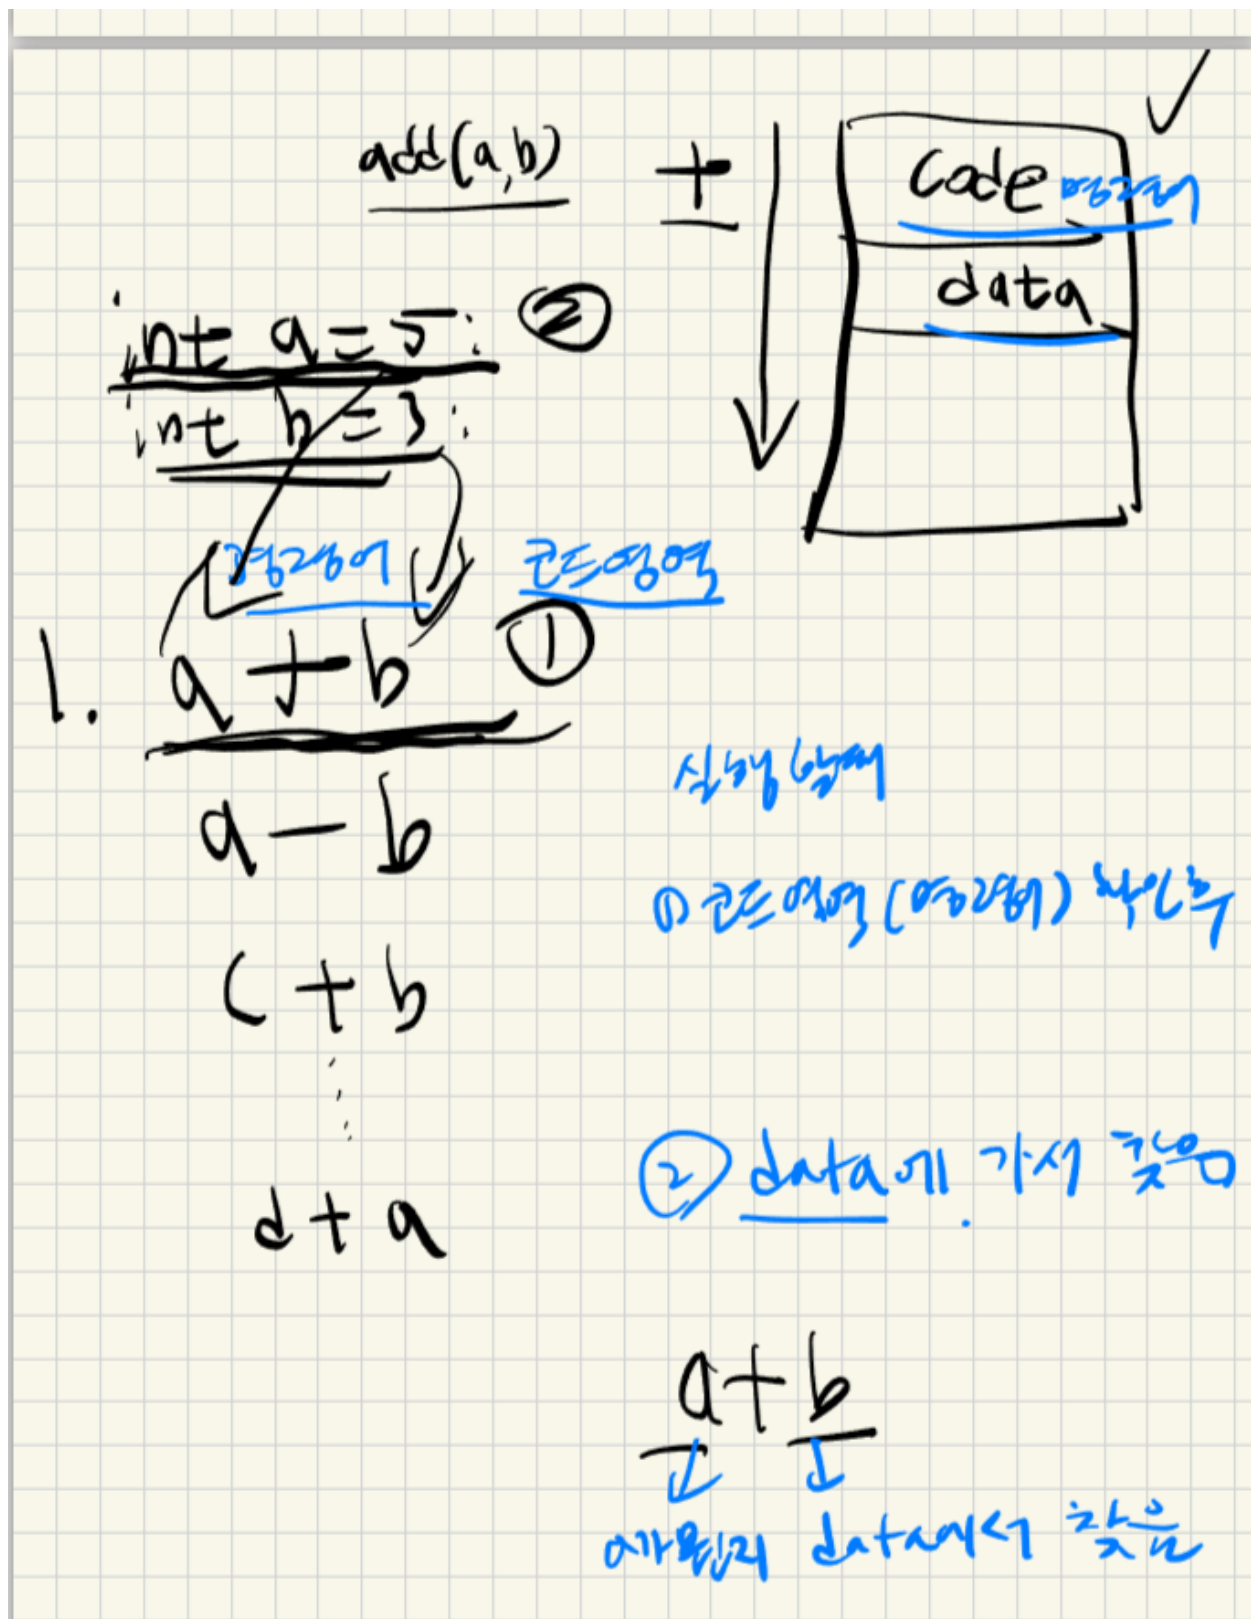 add(a,b) + code 명령어
data
int a = 5; ②
int b = 3;
명령어 코드영역
1. a + b ①
a - b
실행할때
① 코드영역(명령어) 확인후
c + b
② data에 가서 찾음
d + a
a + b
data에서 찾음